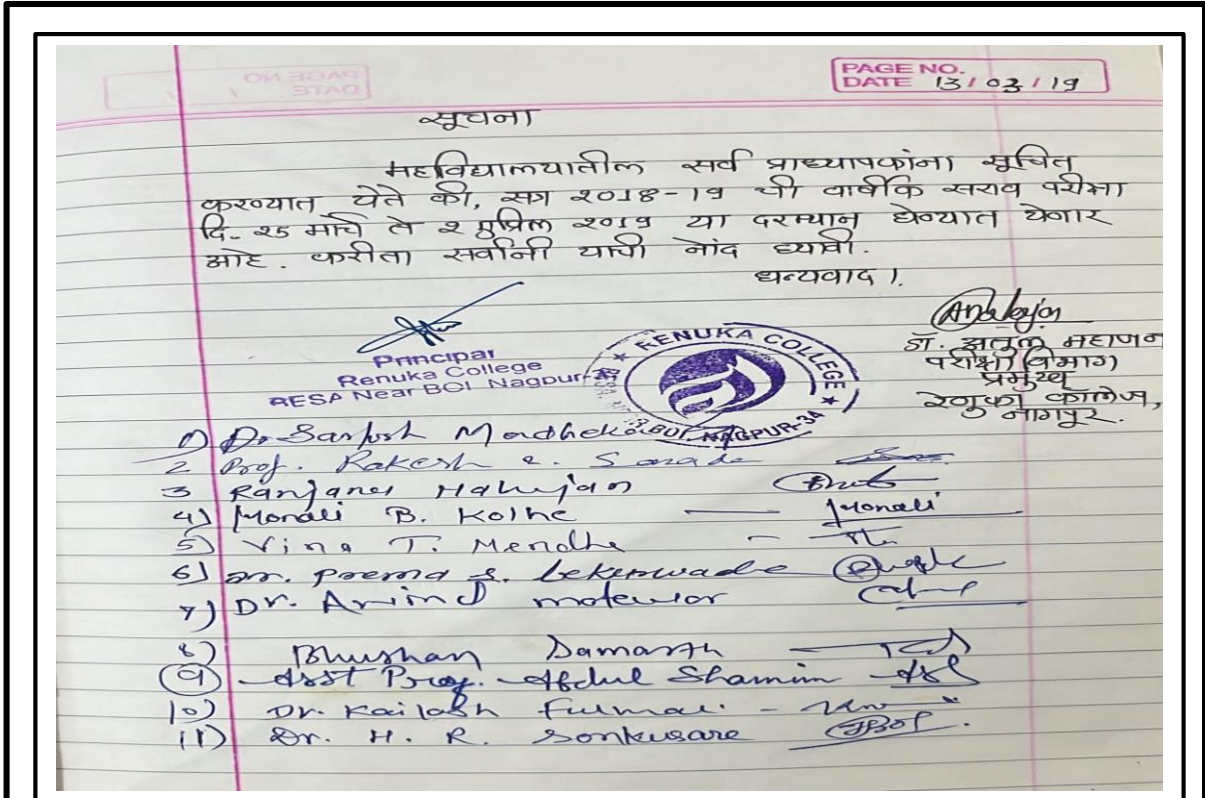 PAGE NO.
DATE 13/03/19
सूचना
महाविद्यालयातील सर्व प्राध्यापकांना सूचित
करण्यात येते की, सत्र २०१८-१९ ची वार्षीक सराव परीक्षा
दि. २५ मार्च ते २ एप्रिल २०१९ या दरम्यान घेण्यात येणार
आहे. करीता सर्वांनी याची नोंद घ्यावी.
धन्यवाद।
Principal
Renuka College
BESA Near BOI Nagpur-34
RENUKA COLLEGE
BOI, NAGPUR-34
डॉ. अतुल महाजन
परीक्षा विभाग
प्रमुख
रेणुका कॉलेज,
नागपूर.
1) Dr. Santosh
2 Prof. Rakesh
3 Ranjana Mahajan
4) Monali B. Kolhe — Monali
5) Vina T. Mendhe
6) Dr. Prema S.
7) Dr. Arvind
8) Bhushan Damarth
9 Asst Prof. Abdul Shamim
10) Dr. Kailash
11) Dr. H. R. Sonkusare